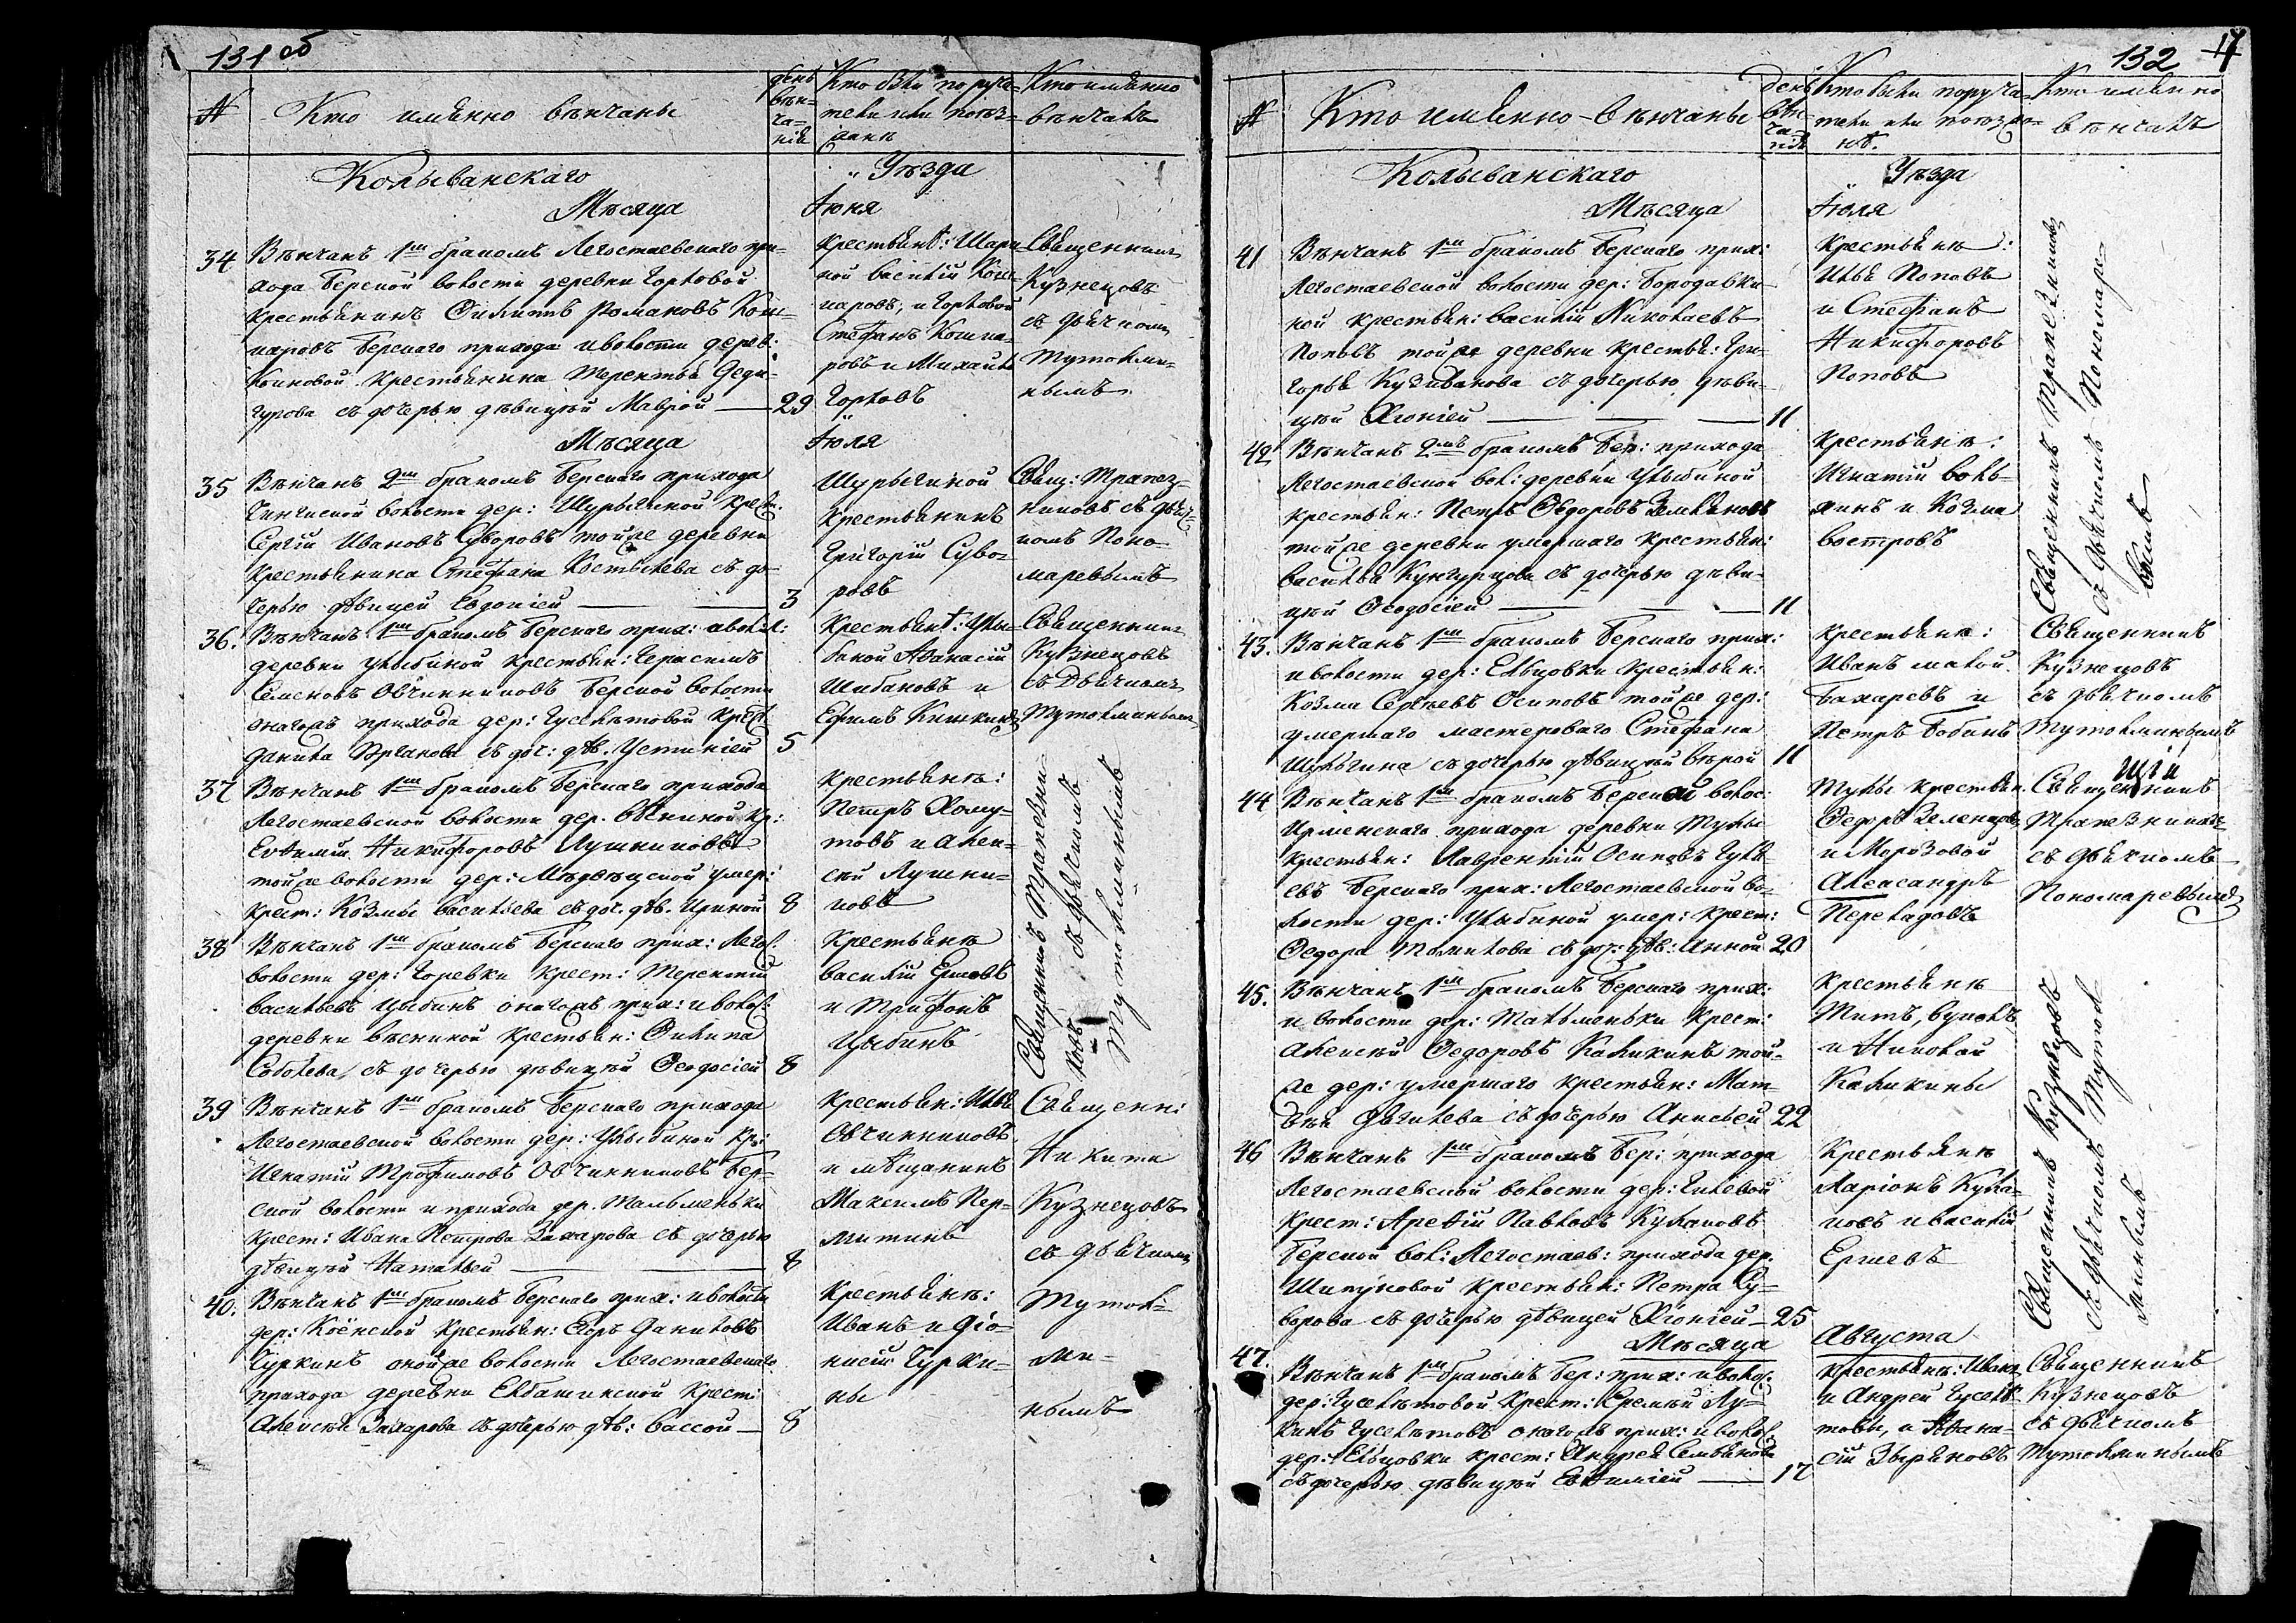 131 об
№
Кто имянно вѣнчаны
день вѣн-чанія
Кто были поруча-
тели или поѣз-
жанѣ
Кто имянно
вѣнчалъ
Колыванскаго Уѣзда
Мѣсяца Іюня
34
Вѣнчанъ 1мъ бракомъ Легостаевскаго при-
хода Берской волости деревни Горловой
крестьянинъ Филиппъ Романовъ Кош-
каровъ Берскаго прихода и волости дерев:
крестьянина Терентья
съ дочерью дѣвицей Маврой — 29
крестьянѣ:
Василій Кош-
каровъ, и Горловой
Стефанъ Кошка-
ровъ и Михайло
Горловъ
Священникъ
Кузнецовъ
съ дьячкомъ
Тутолми-
нымъ
Мѣсяца Іюля
35
Вѣнчанъ 2мъ бракомъ Берскаго прихода
Чингиской волости дер: Шурыгиной крест.
Сергій Ивановъ Суворовъ той же деревни
крестьянина Стефана Костылева съ до-
черью дѣвицей Евдокіей — 3
Шурыгиной
крестьянинъ
Григорій Суво-
ровъ
Свящ: Трапез-
никовъ съ дьяч-
комъ Поно-
маревымъ
36.
Вѣнчанъ 1мъ бракомъ Берскаго прих: и волос:
деревни Улыбиной крестьян: Герасимъ
Семеновъ Овчинниковъ Берской волости
онагожъ прихода дер: Гуселѣтовой крест
Данила съ доч: дѣв: Устиніей 5
Крестьянѣ: Улы-
биной Афанасій
Шибановъ и
Ефимъ
Священникъ
Кузнецовъ
съ Дьячкомъ
Тутолминымъ
37
Вѣнчанъ 1мъ бракомъ Берскаго прихода
Легостаевской волости дер. Вѣкиной кр:
Евфимій Никифоровъ Лушниковъ
той же волости дер: Медвѣцкой умер:
крест: Козмы Васильева съ доч. дѣв. Ириной 8
крестьянѣ:
Петръ Хому-
товъ и Алек-
сѣй Лушни-
ковъ
Священникъ Трапезни-
ковъ съ дьячкомъ
Тутолминымъ
38
Вѣнчанъ 1мъ бракомъ Берскаго прих: Легос:
волости дер: Горевки крест: Терентій
Васильевъ Цыбинъ онагожъ прих: и волос:
деревни крестьян: Филипа
Соболева съ дочерью дѣвицей Феодосіей 8
Крестьянѣ
Василій Ершовъ
и Трифонъ
Цыбинъ
39
Вѣнчанъ 1мъ бракомъ Берскаго прихода
Легостаевской волости дер: Улыбиной кр:
Игнатій Трофимовъ Овчинниковъ Бер-
ской волости и прихода дер. Тальменьки
крест: Ивана Петрова Захарова съ дочерью
дѣвицей Натальей — 8
Крестьян: Илья
Овчинниковъ
и мѣщанинъ
Максимъ Пер-
митинъ
Священ:
Никита
Кузнецовъ
съ дьячкомъ
40.
Вѣнчанъ 1мъ бракомъ Берскаго прих: и волости
дер: Коёнской крестьян: Егоръ Даниловъ
Чуркинъ онойже волости Легостаевскаго
прихода деревни Елбашинской крест:
Алексѣя Захарова съ дочерью дѣв: Вассой — 8
Крестьянѣ:
Иванъ и Діо-
нисій Чурки-
ны
Тутол-
ми-
нымъ
132
№
Кто имянно вѣнчаны
день вѣн-чанія
Кто были поруча-
тели или поѣзжа-
нѣ.
Кто имянно
вѣнчалъ
Колыванскаго Уѣзда
Мѣсяца Іюля
41
Вѣнчанъ 1мъ бракомъ Берскаго прих:
Легостаевской волости дер: Бородавки-
ной крестьян: Василій Николаевъ
Поповъ той же деревни крестья: Гри-
горья Кузиванова съ дочерью дѣви-
цей Хіоніей — 11
Крестьянѣ:
Илья Поповъ
и Стефанъ
Никифоровъ
Поповъ
Священникъ Трапезниковъ
съ дьячкомъ Пономаре-
вымъ
42
Вѣнчанъ 2мъ бракомъ Бер: прихода
Легостаевской вол: деревни Улыбиной
крестьян: Петръ Федоровъ Земляновъ
той же деревни умершаго крестьян:
Василья Кунгурцова съ дочерью дѣви-
цей Феодосіей — 11
крестьянѣ:
Игнатій Воль-
хинъ и Козма
Востровъ
43.
Вѣнчанъ 1мъ бракомъ Берскаго прих:
и волости дер: Ельцовки крестьян:
Козма Сергѣевъ Осиповъ той же дер:
умершаго мастероваго Стефана
Шульгина съ дочерью дѣвицей Вѣрой 11
крестьянѣ:
Иванъ малой
Бахаревъ и
Петръ Бобинъ
Священникъ
Кузнецовъ
съ дьячкомъ
Тутолминымъ
44
Вѣнчанъ 1мъ бракомъ Берской волос:
Ирменскаго прихода деревни Тулы
крестьян: Лаврентій Осиповъ Гуля-
евъ Берскаго прих: Легостаевской во-
лости дер: Улыбиной умер: крест:
Федора Томилова съ доч: дѣв: Анной 20
Тулы крестьян.
Федоръ Зеленцовъ
и Морозовой
Александръ
Переладовъ
Священникъ
Трапезниковъ
съ дьячкомъ
Пономаревымъ
45.
Вѣнчанъ 1мъ бракомъ Берскаго прих:
и волости дер: Тальменьки крест:
Алексѣй Федоровъ Каликинъ той-
же дер: умершаго крестьян: Мат-
вѣя съ дочерью Анисьей 22
Крестьянѣ
Титъ, Вуколъ
и Николай
Каликины
Священникъ Кузнецовъ
съ дьячкомъ Тутол-
минымъ
46
Вѣнчанъ 1мъ бракомъ Бер: прихода
Легостаевской волости дер: Гилевой
крест: Арефій Павловъ Кулаковъ
Берской вол: Легостаев: прихода дер.
Шипуновой крестьян: Петра Су-
ворова съ дочерью дѣвицей Хіоніей — 25
Крестьянѣ
Ларіонъ Кула-
ковъ и Василій
Ершевъ
Мѣсяца Августа
47.
Вѣнчанъ 1мъ бракомъ Бер: прих: и волос.
дер: Гуселѣтовой крест: Еремѣй Лу-
кинъ Гуселѣтовъ онагожъ прих: и волос.
дер: Ельцовки крест: Андрея Семьянова
съ дочерью дѣвицей Евфиміей — 17
крестьянѣ: Иванъ
и Андрей Гуселѣ-
товы, и Афана-
сій Зыряновъ
Священникъ
Кузнецовъ
съ дьячкомъ
Тутолминымъ